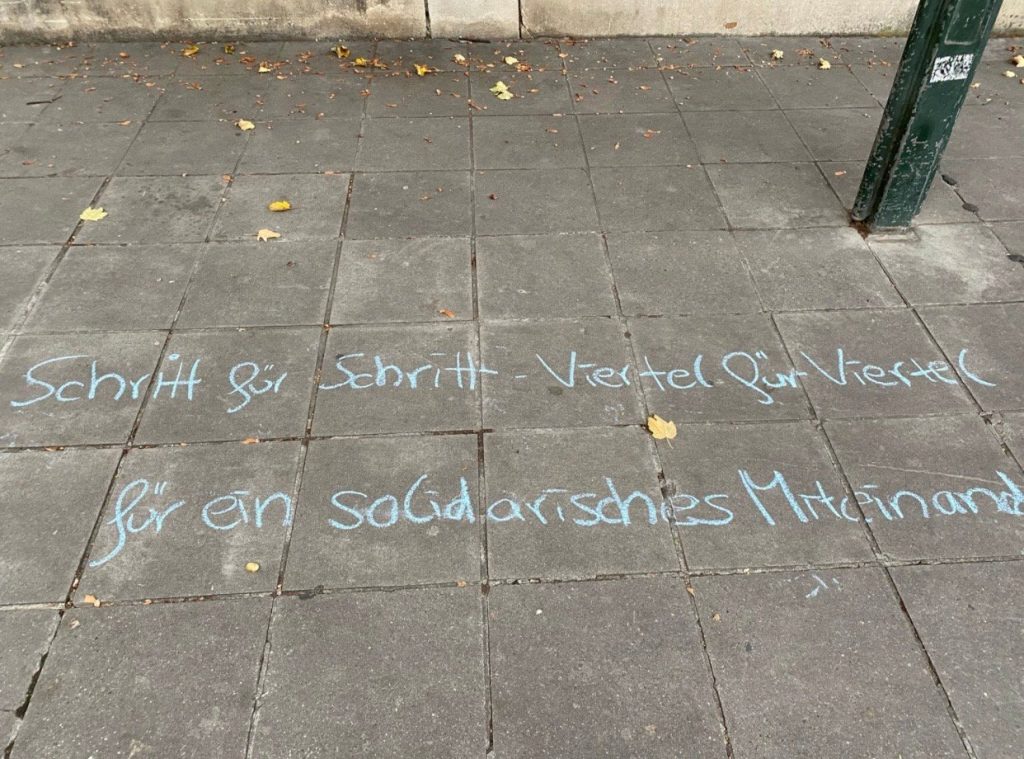 Schritt für Schritt - Viertel für Viertel
für ein solidarisches Miteinand